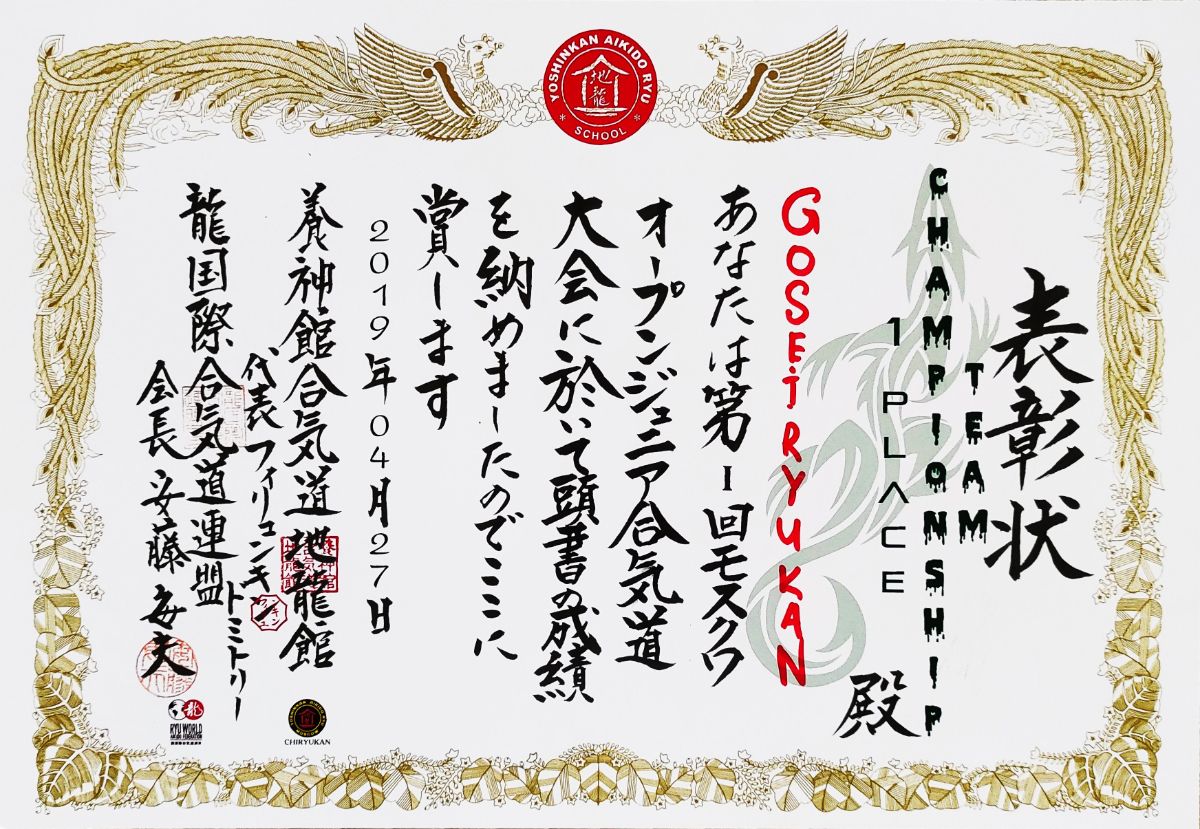 YOSHINKAN AIKIDO RYU
地龍
SCHOOL
表彰状
TEAM
CHAMPIONSHIP
1 PLACE
殿
GOSEIRYUKAN
あなたは第1回モスクワ
オープンジュニア合気道
大会に於いて頭書の成績
を納めましたのでここに
賞します
2019年04月27日
養神館合気道地龍館
代表フィリュンキン
ドミトリー
龍国際合気道連盟
会長安藤毎夫
YOSHINKAN AIKIDO
MOSCOW
CHIRYUKAN
龍
RYU WORLD
AIKIDO FEDERATION